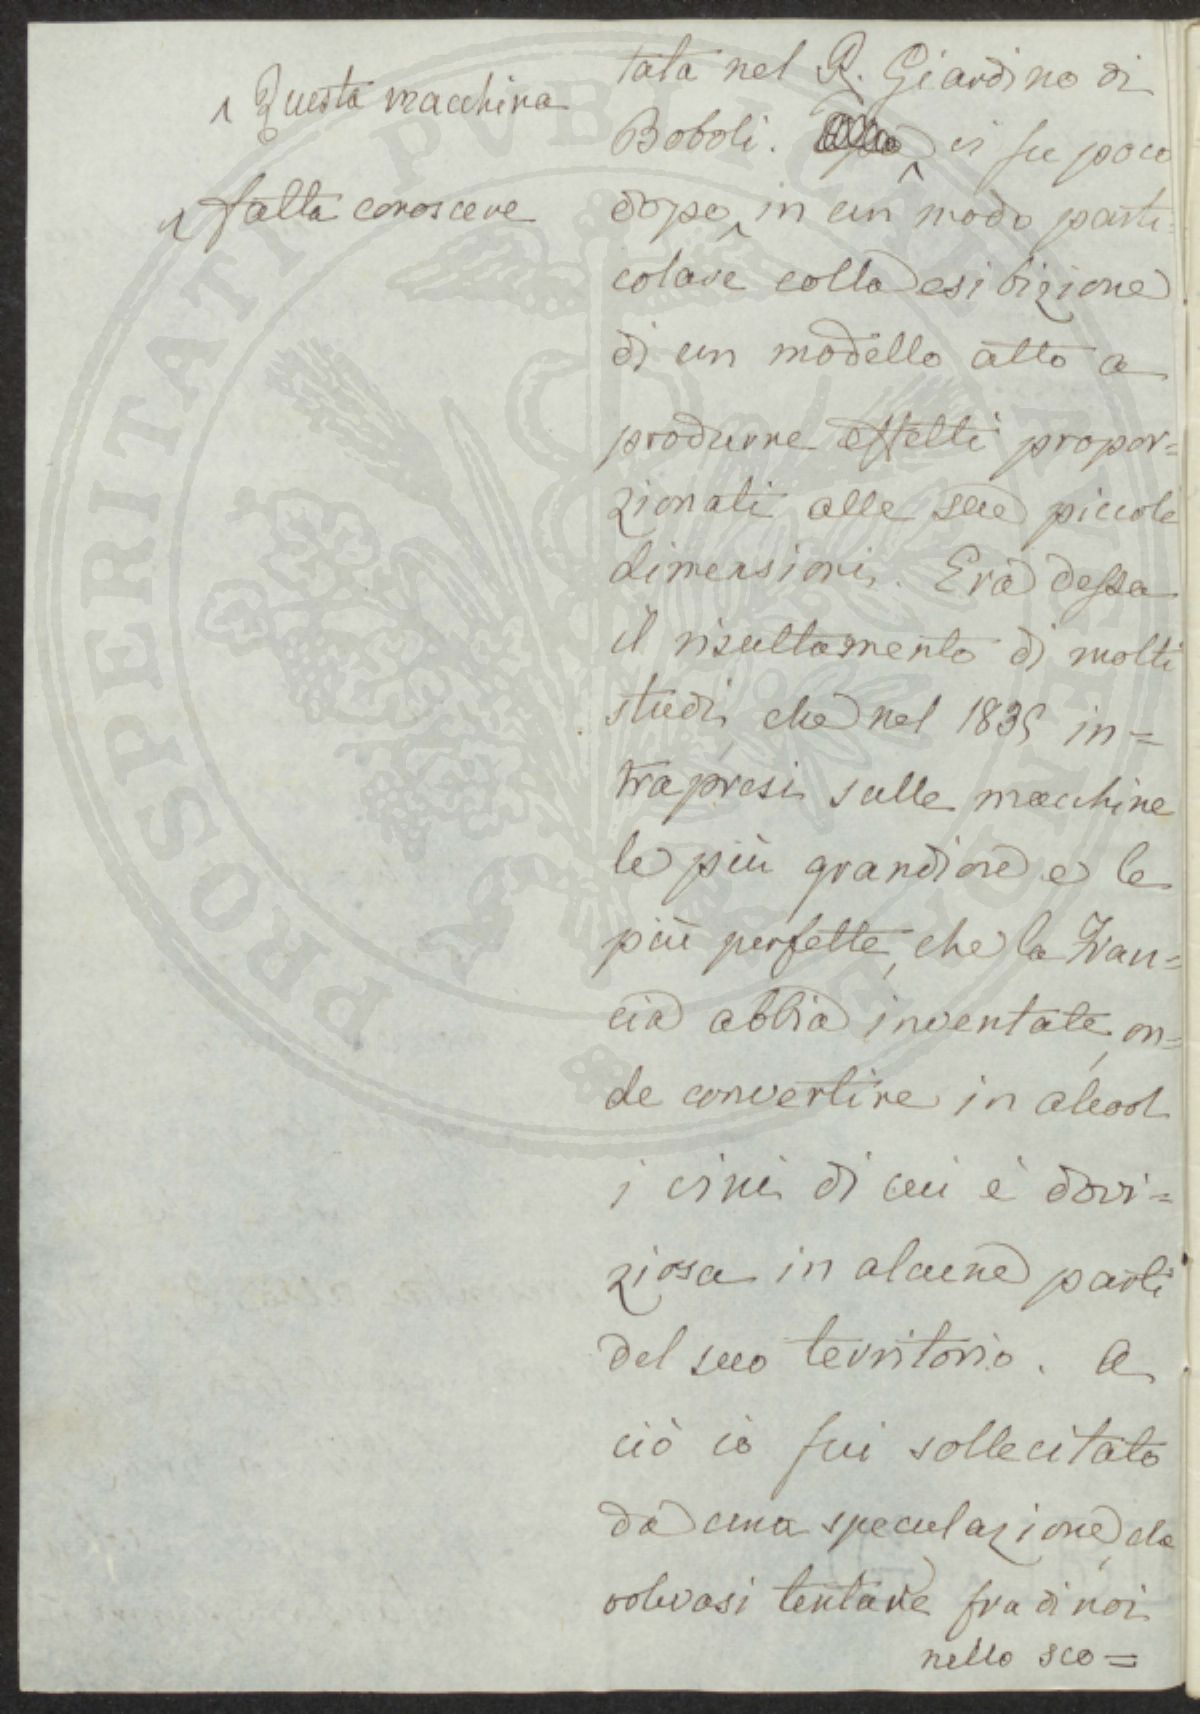 ^ Questa macchina
^ fatta conoscere
tata nel R. Giardino di
Boboli. ^ ci fu poco
dopo ^ in un modo parti=
colare colla esibizione
di un modello atto a
produrre effetti propor=
zionati alle sue piccole
dimensioni. Era dessa
il risultamento di molti
studi, che nel 1835 in=
trapresi sulle macchine
le più grandiose e le
più perfette, che la Fran=
cia abbia inventate, on=
de convertire in alcool
i vini di cui è dovi=
ziosa in alcune parti
del suo territorio. A
ciò io fui sollecitato
da una speculazione, che
volevasi tentare fra di noi
nello sco=
PROSPERITATI PVBLICAE AVGENDAE